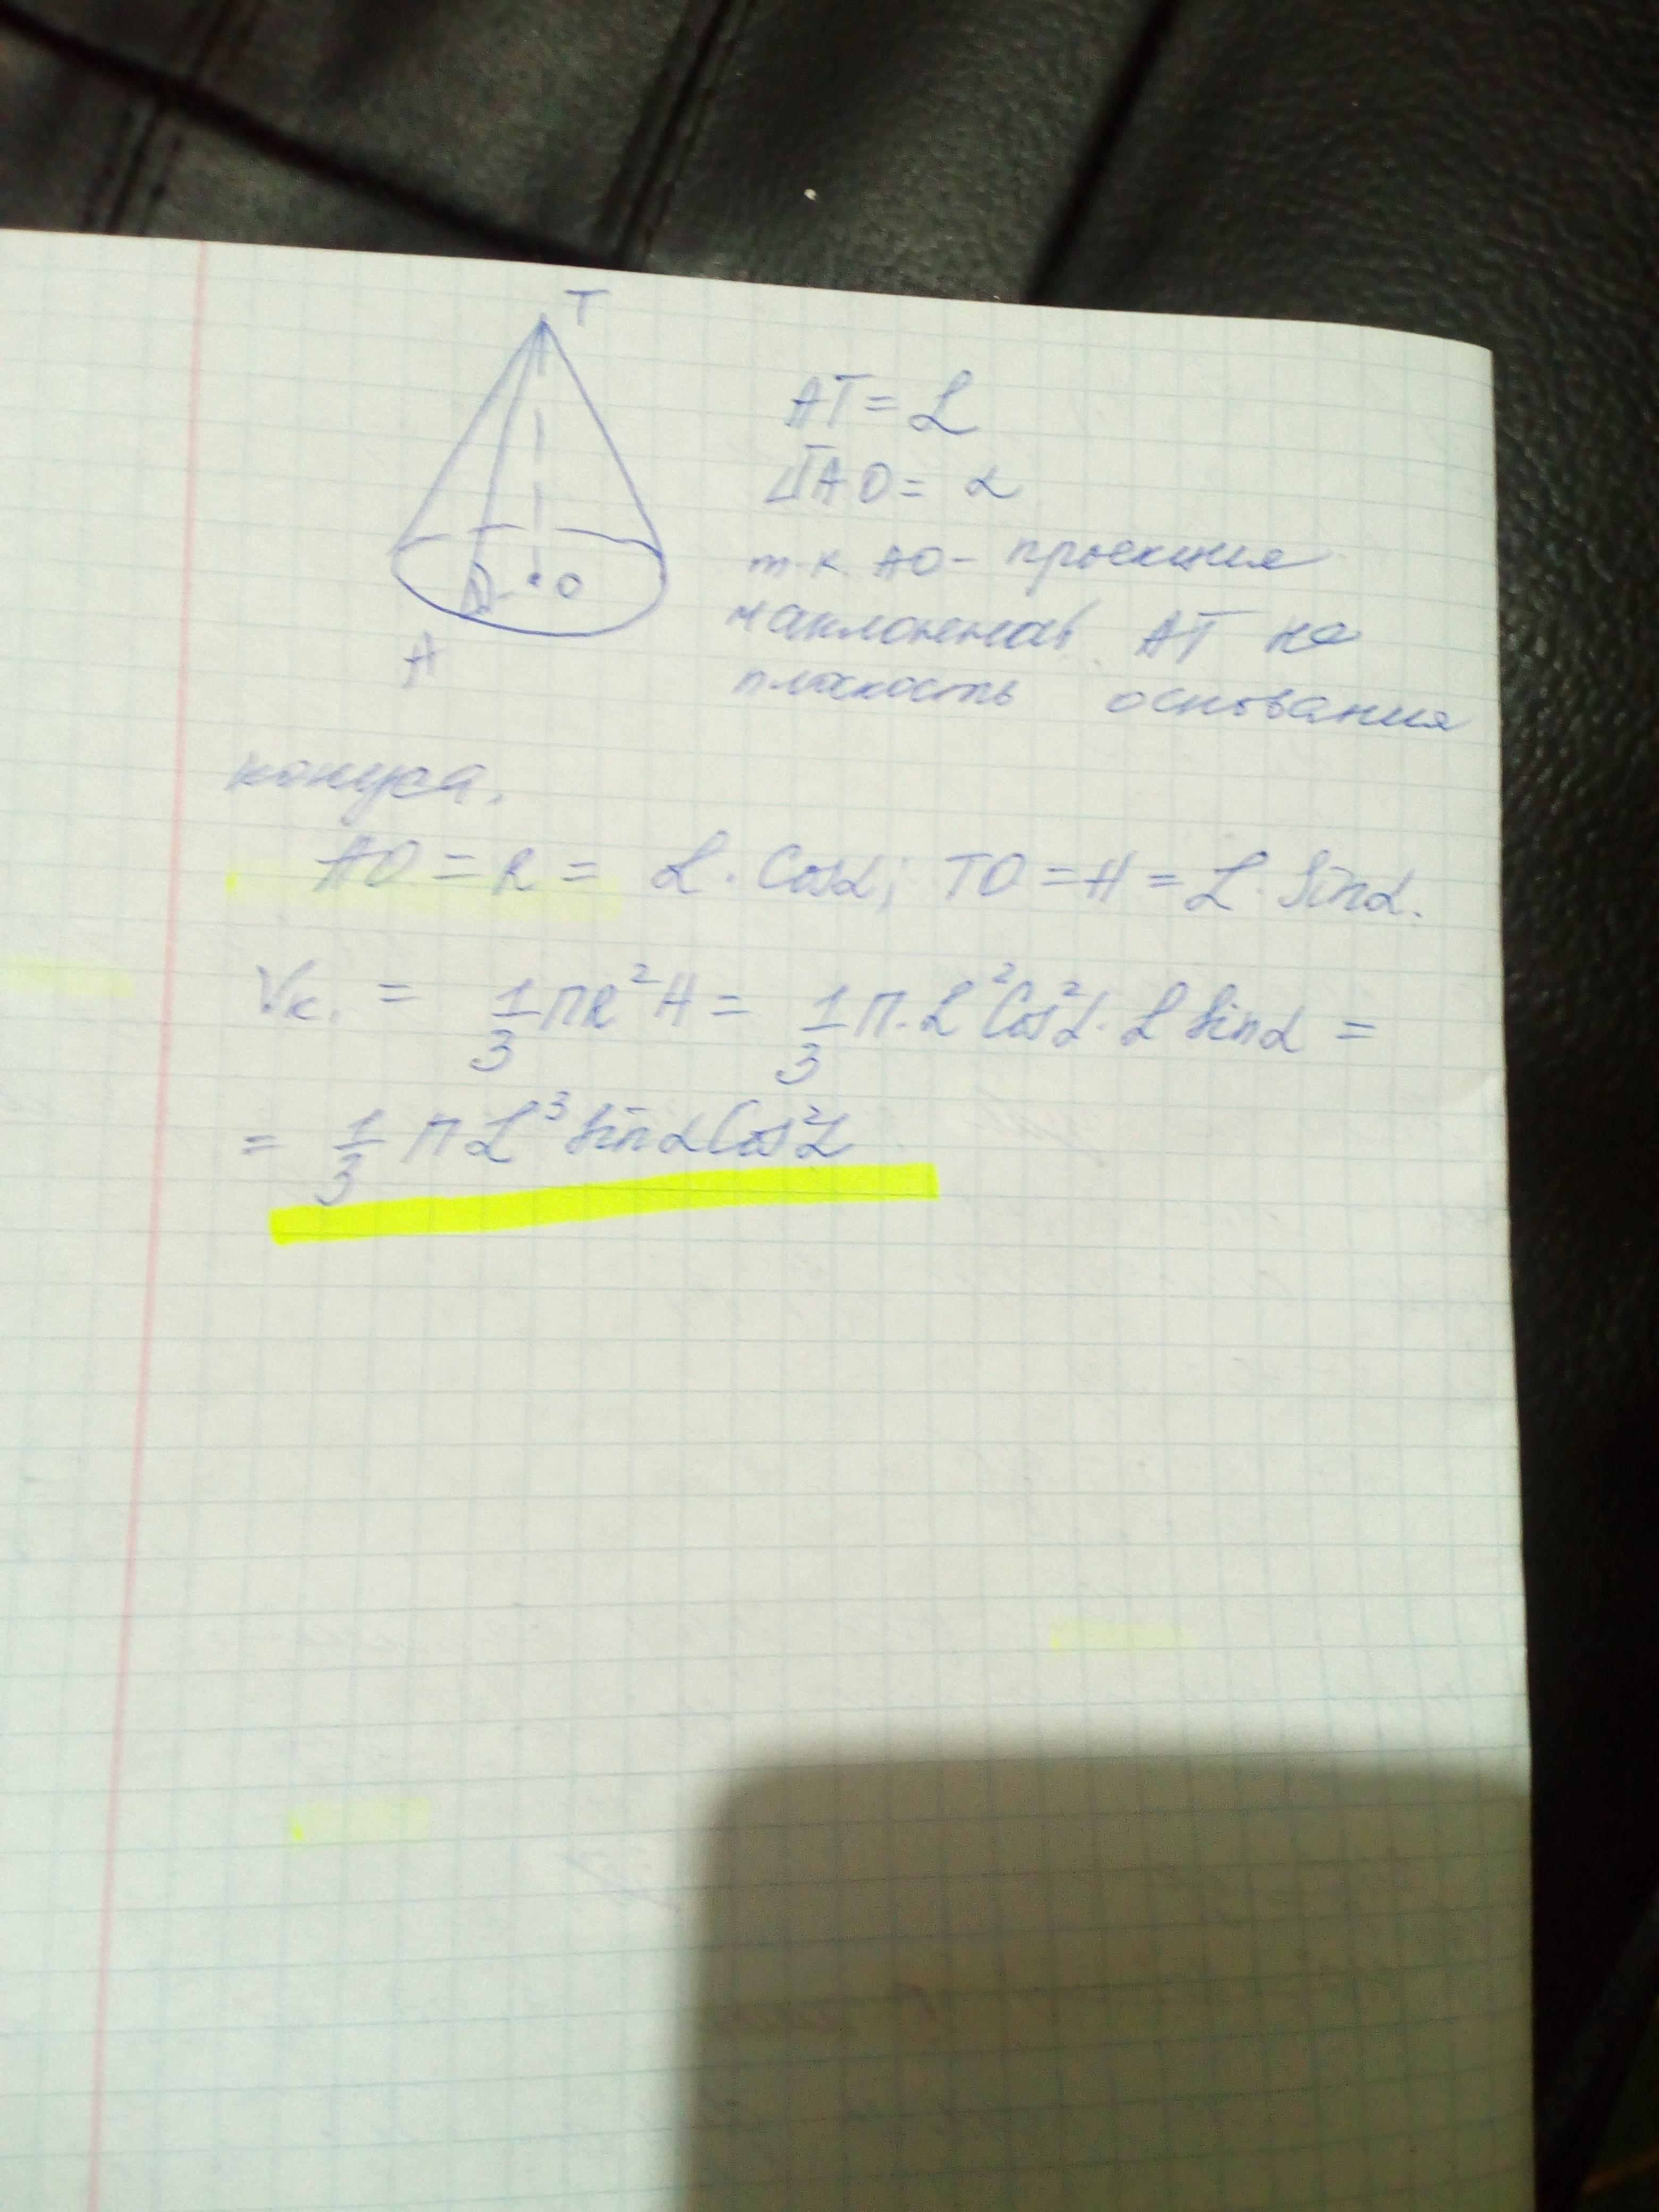 T
AT = L
∠TAO = α
т.к. AO - проекция
наклонной AT на
O
A
плоскость основания
конуса.
AO = R = L · Cosα; TO = H = L · Sinα.
Vк. = 1/3 ПR²H = 1/3 П · L²Cos²α · L Sinα =
= 1/3 ПL³ Sinα Cos²α